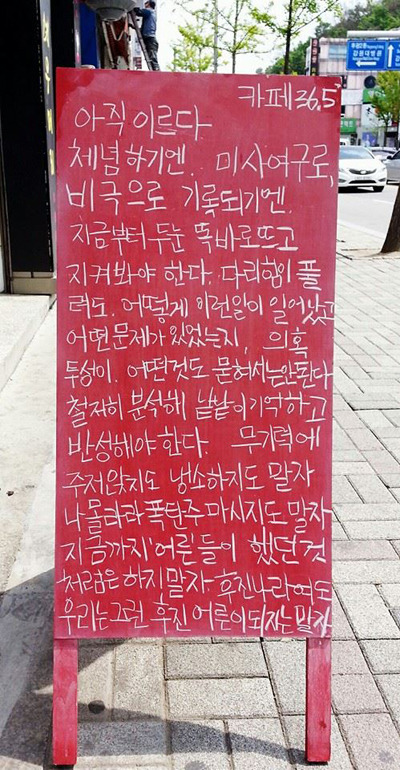 카페 36.5°
아직 이르다
체념하기엔. 미사여구로,
비극으로 기록되기엔.
지금부터 두눈 똑바로뜨고
지켜봐야 한다. 다리힘이 풀
려도. 어떻게 이런일이 일어났고
어떤문제가 있었는지, 의혹
투성이. 어떤것도 묻혀서는안된다
철저히 분석해 낱낱이기억하고
반성해야한다. 무기력에
주저앉지도 냉소하지도 말자
나몰라라 폭탄주 마시지도 말자
지금까지 '어른'들이 했던 것
처럼은 하지말자. 후진나라여도
우리는 그런 후진 어른이되지는 말자